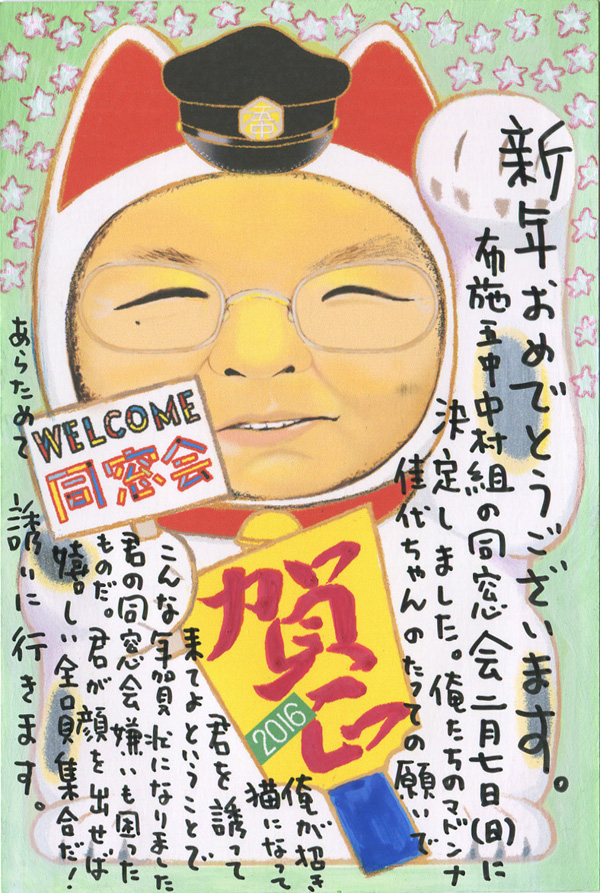 新年おめでとうございます。
布施五中中村組の同窓会二月七日(日)に
決定しました。俺たちのマドンナ
佳代ちゃんのたっての願いで
俺が招き
猫になって
君を誘って
来てよということで
こんな年賀状になりました
君の同窓会嫌いも困った
ものだ。君が顔を出せば
嬉しい全員集合だ!
あらためて誘いに行きます。
WELCOME
同窓会
賀正
2016
五中